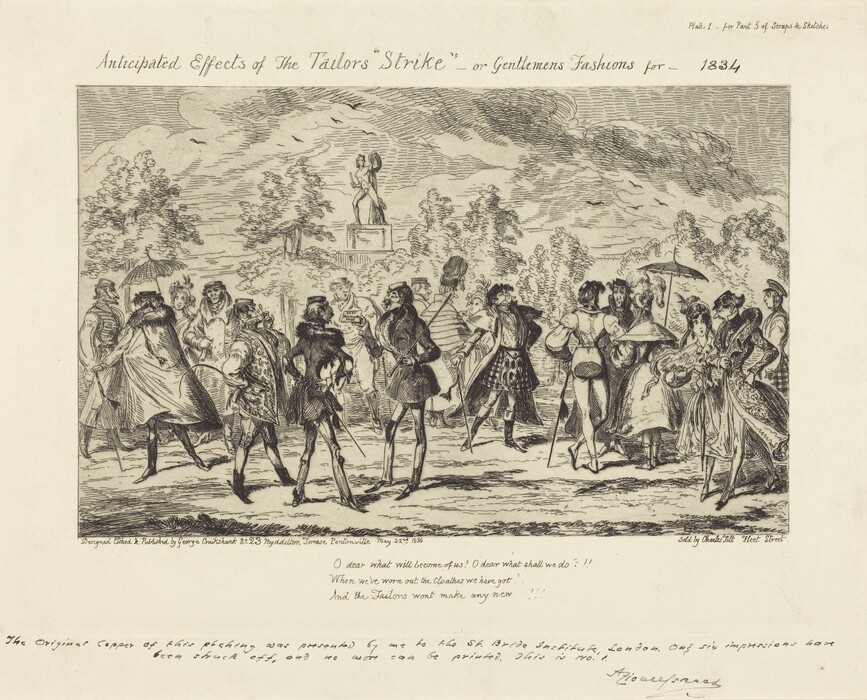 Plate 1 - for Part 5 of Scraps & Sketches
Anticipated Effects of The Tailors "Strike" - or Gentlemens Fashions for - 1834
Designed Etched & Published by George Cruikshank No 23 Myddelton Terrace Pentonville May 22nd 1834
Sold by Charles Tilt Fleet Street
O dear what will become of us? O dear what shall we do ? !!
When we've worn out the Cloathes we have got !
And the Tailors wont make any new !!!
The Original Copper of this etching was presented by me to the St. Bride Institute, London. Only six impressions have
been struck off, and no more can be printed. This is No. 1.